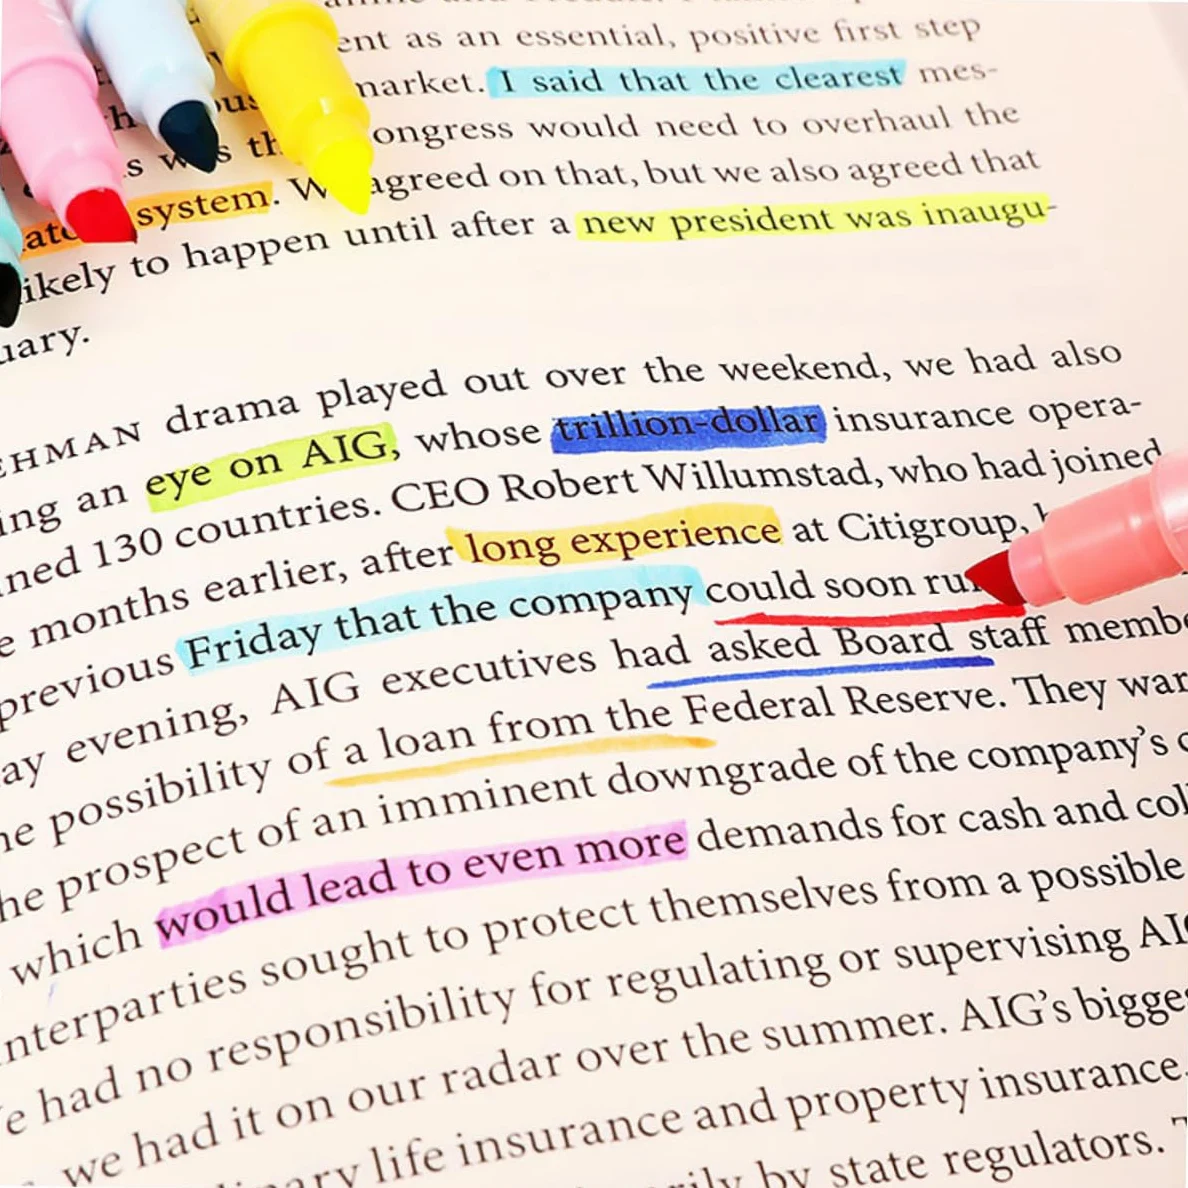 ent as an essential, positive first step
market. I said that the clearest mes-
ongress would need to overhaul the
system. W agreed on that, but we also agreed that
ikely to happen until after a new president was inaugu-
uary.
EHMAN drama played out over the weekend, we had also
ing an eye on AIG, whose trillion-dollar insurance opera-
ned 130 countries. CEO Robert Willumstad, who had joined
e months earlier, after long experience at Citigroup, h
previous Friday that the company could soon ru
ay evening, AIG executives had asked Board staff membe
he possibility of a loan from the Federal Reserve. They wan
he prospect of an imminent downgrade of the company's c
which would lead to even more demands for cash and col
nterparties sought to protect themselves from a possible
e had no responsibility for regulating or supervising AIG
we had it on our radar over the summer. AIG's bigge
nary life insurance and property insurance.
rily by state regulators. T